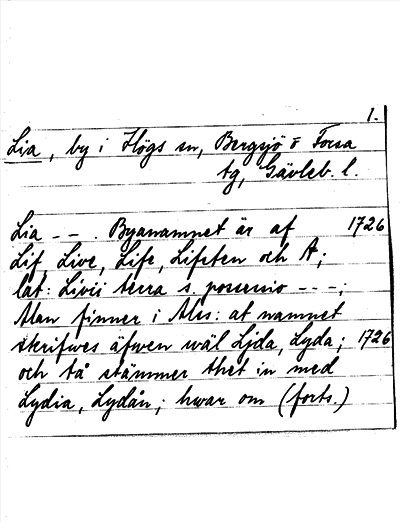 1.
Lia, by i Högs sn, Bergsjö o Forsa
tg, Gävleb. l.
Lia - - . Byanamnet är af 1726
Lif, Live, Life, Lifsten och A;
lat: Livii terra s. possessio - - -;
Man finner i Mss: at namnet
skrifwes äfwen wäl Ljda, Lyda; 1726
och då stämmer thet in med
Lydia, Lydån; hwar om (forts.)